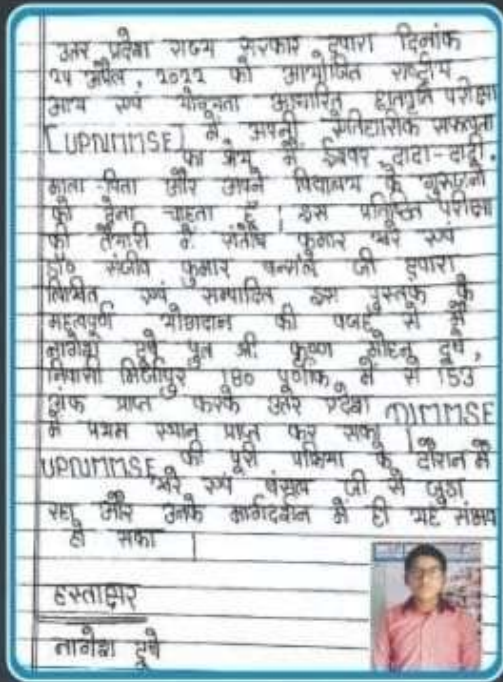 उत्तर प्रदेश राज्य सरकार द्वारा दिनांक
24 अप्रैल, 2022 को आयोजित राष्ट्रीय
आय एवं योग्यता आधारित छात्रवृत्ति परीक्षा
[UPNMMSE] में अपनी ऐतिहासिक सफलता
का श्रेय मैं ईश्वर, दादा-दादी,
माता-पिता और अपने विद्यालय के गुरुजनों
को देना चाहता हूँ | इस प्रतिष्ठित परीक्षा
की तैयारी में संतोष कुमार खरे एवं
डॉ० संजीव कुमार जी द्वारा
लिखित एवं सम्पादित इस पुस्तक के
महत्वपूर्ण योगदान की वजह से मैं
नागेश दूबे पुत्र श्री कृष्ण मोहन दूबे,
निवासी मिर्जापुर 180 पूर्णांक में से 153
अंक प्राप्त करके उत्तर प्रदेश NMMSE
में प्रथम स्थान प्राप्त कर सका |
UPNMMSE की पूरी प्रक्रिया के दौरान मैं
खरे एवं जी से जुड़ा
रहा और उनके मार्गदर्शन में ही यह संभव
हो सका |
हस्ताक्षर
नागेश दूबे